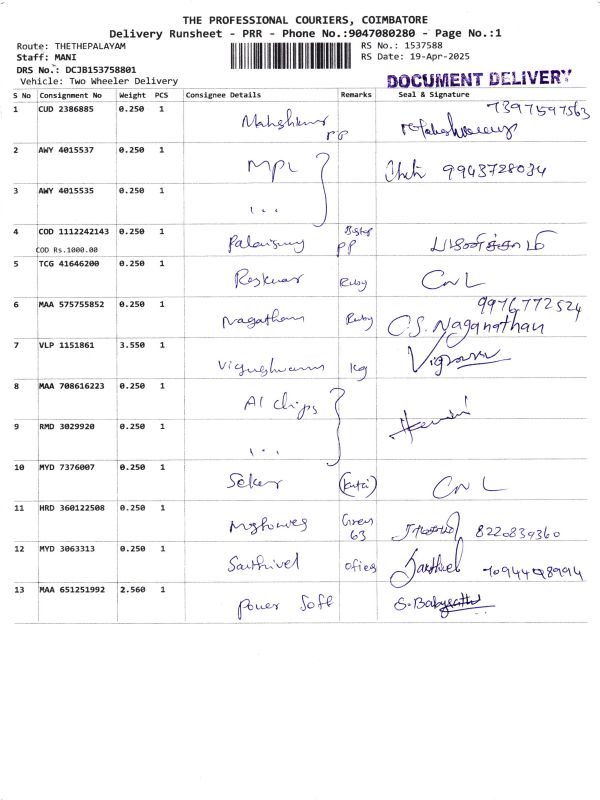 THE PROFESSIONAL COURIERS, COIMBATORE
Delivery Runsheet - PRR - Phone No.:9047080280 - Page No.:1
Route: THETHEPALAYAM RS No.: 1537588
Staff: MANI RS Date: 19-Apr-2025
DRS No.: DCJB153758801
Vehicle: Two Wheeler Delivery DOCUMENT DELIVERY
S No Consignment No Weight PCS Consignee Details Remarks Seal & Signature
1 CUD 2386885 0.250 1 7397597563
PP
2 AWY 4015537 0.250 1 MPL 9943728034
3 AWY 4015535 0.250 1 ...
4 COD 1112242143 0.250 1 Palanisamy PP பழனிச்சாமி
COD Rs.1000.00
5 TCG 41646200 0.250 1 Ruby CNL
6 MAA 575755852 0.250 1 Ruby 9976772524
C.S. Naganathan
7 VLP 1151861 3.550 1 kg
8 MAA 708616223 0.250 1 AI chips
9 RMD 3029920 0.250 1 ...
10 MYD 7376007 0.250 1 Seker CNL
11 HRD 360122508 0.250 1 Green 63 8220839360
12 MYD 3063313 0.250 1 Sakthivel
13 MAA 651251992 2.560 1 Power Soft